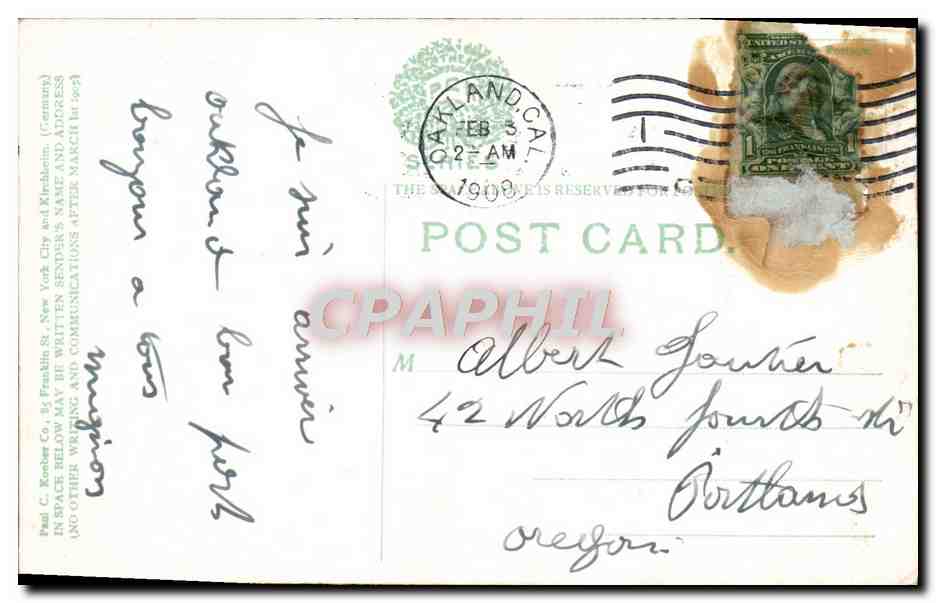 Paul C. Koeber Co., 85 Franklin St., New York City and Kirchheim, (Germany.)
IN SPACE BELOW MAY BE WRITTEN SENDER'S NAME AND ADDRESS
(NO OTHER WRITING AND COMMUNICATIONS AFTER MARCH 1st 1905)
SERIES
OAKLAND, CAL.
FEB 3
2-AM
1908
UNITED STATES
AMERICA
POSTAGE
ONE
THE SPACE LINE IS RESERVED FOR
POST CARD.
CPAPHIL
Je suis arriver
oakland bon port
bonjour a tous
M Albert Gautier
42 North fourth str
Portland
oregon